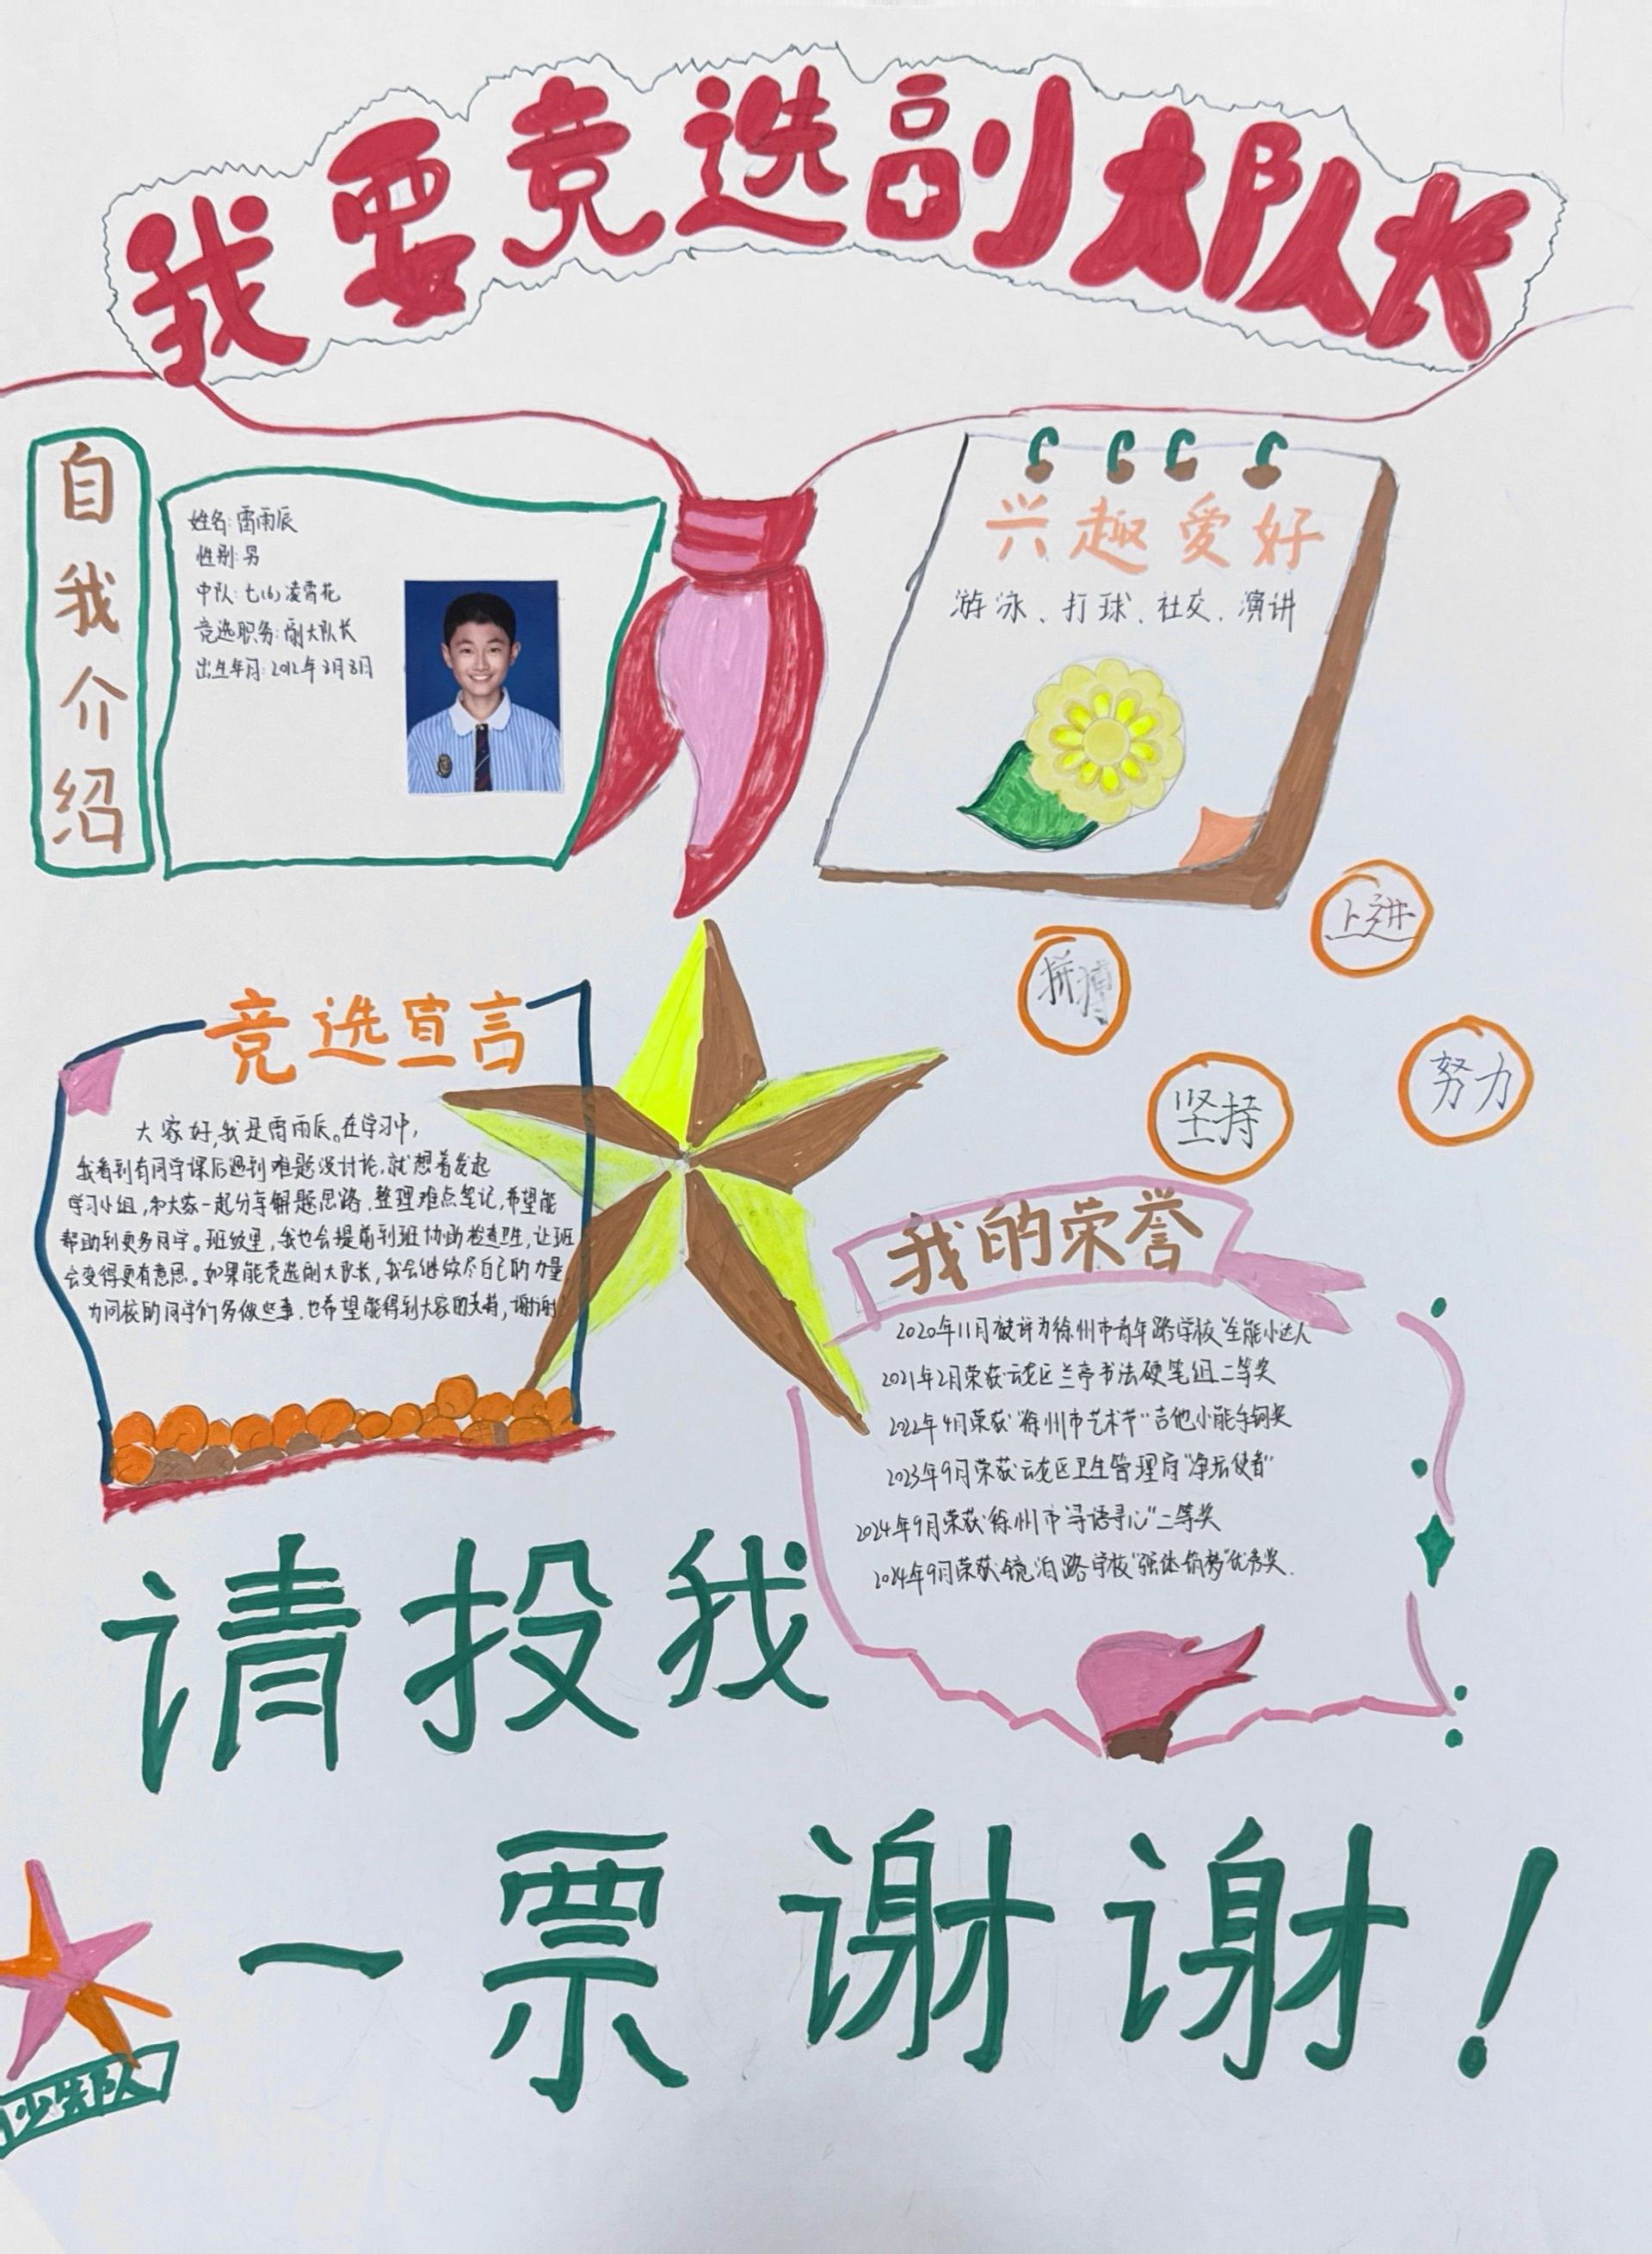 我要竞选副大队长
自我介绍
姓名:雷雨辰
性别:男
中队:七(6)凌霄花
竞选职务:副大队长
出生年月:2012年3月8日
兴趣爱好
游泳、打球、社交、演讲
上进
拼搏
坚持
努力
竞选宣言
大家好,我是雷雨辰。在学习中,
我看到有同学课后遇到难题没讨论,就想着发起
学习小组,和大家一起分享解题思路、整理难点笔记,希望能
帮助到更多同学。班级里,我也会提前到班协助检查卫生,让班
会变得更有意思。如果能竞选副大队长,我会继续尽自己的力量
为同校的同学们多做些事,也希望能得到大家的支持,谢谢!
我的荣誉
2020年11月被评为徐州市青年路学校“全能小达人
2021年2月荣获云龙区兰亭书法硬笔组二等奖
2022年4月荣获“徐州市艺术节”吉他小能手铜奖
2023年9月荣获云龙区卫生管理府“净坛使者”
2024年9月荣获徐州市“寻语寻心”二等奖
2024年9月荣获镜泊路学校“强体筑梦”优秀奖.
请投我
一票谢谢!
少先队